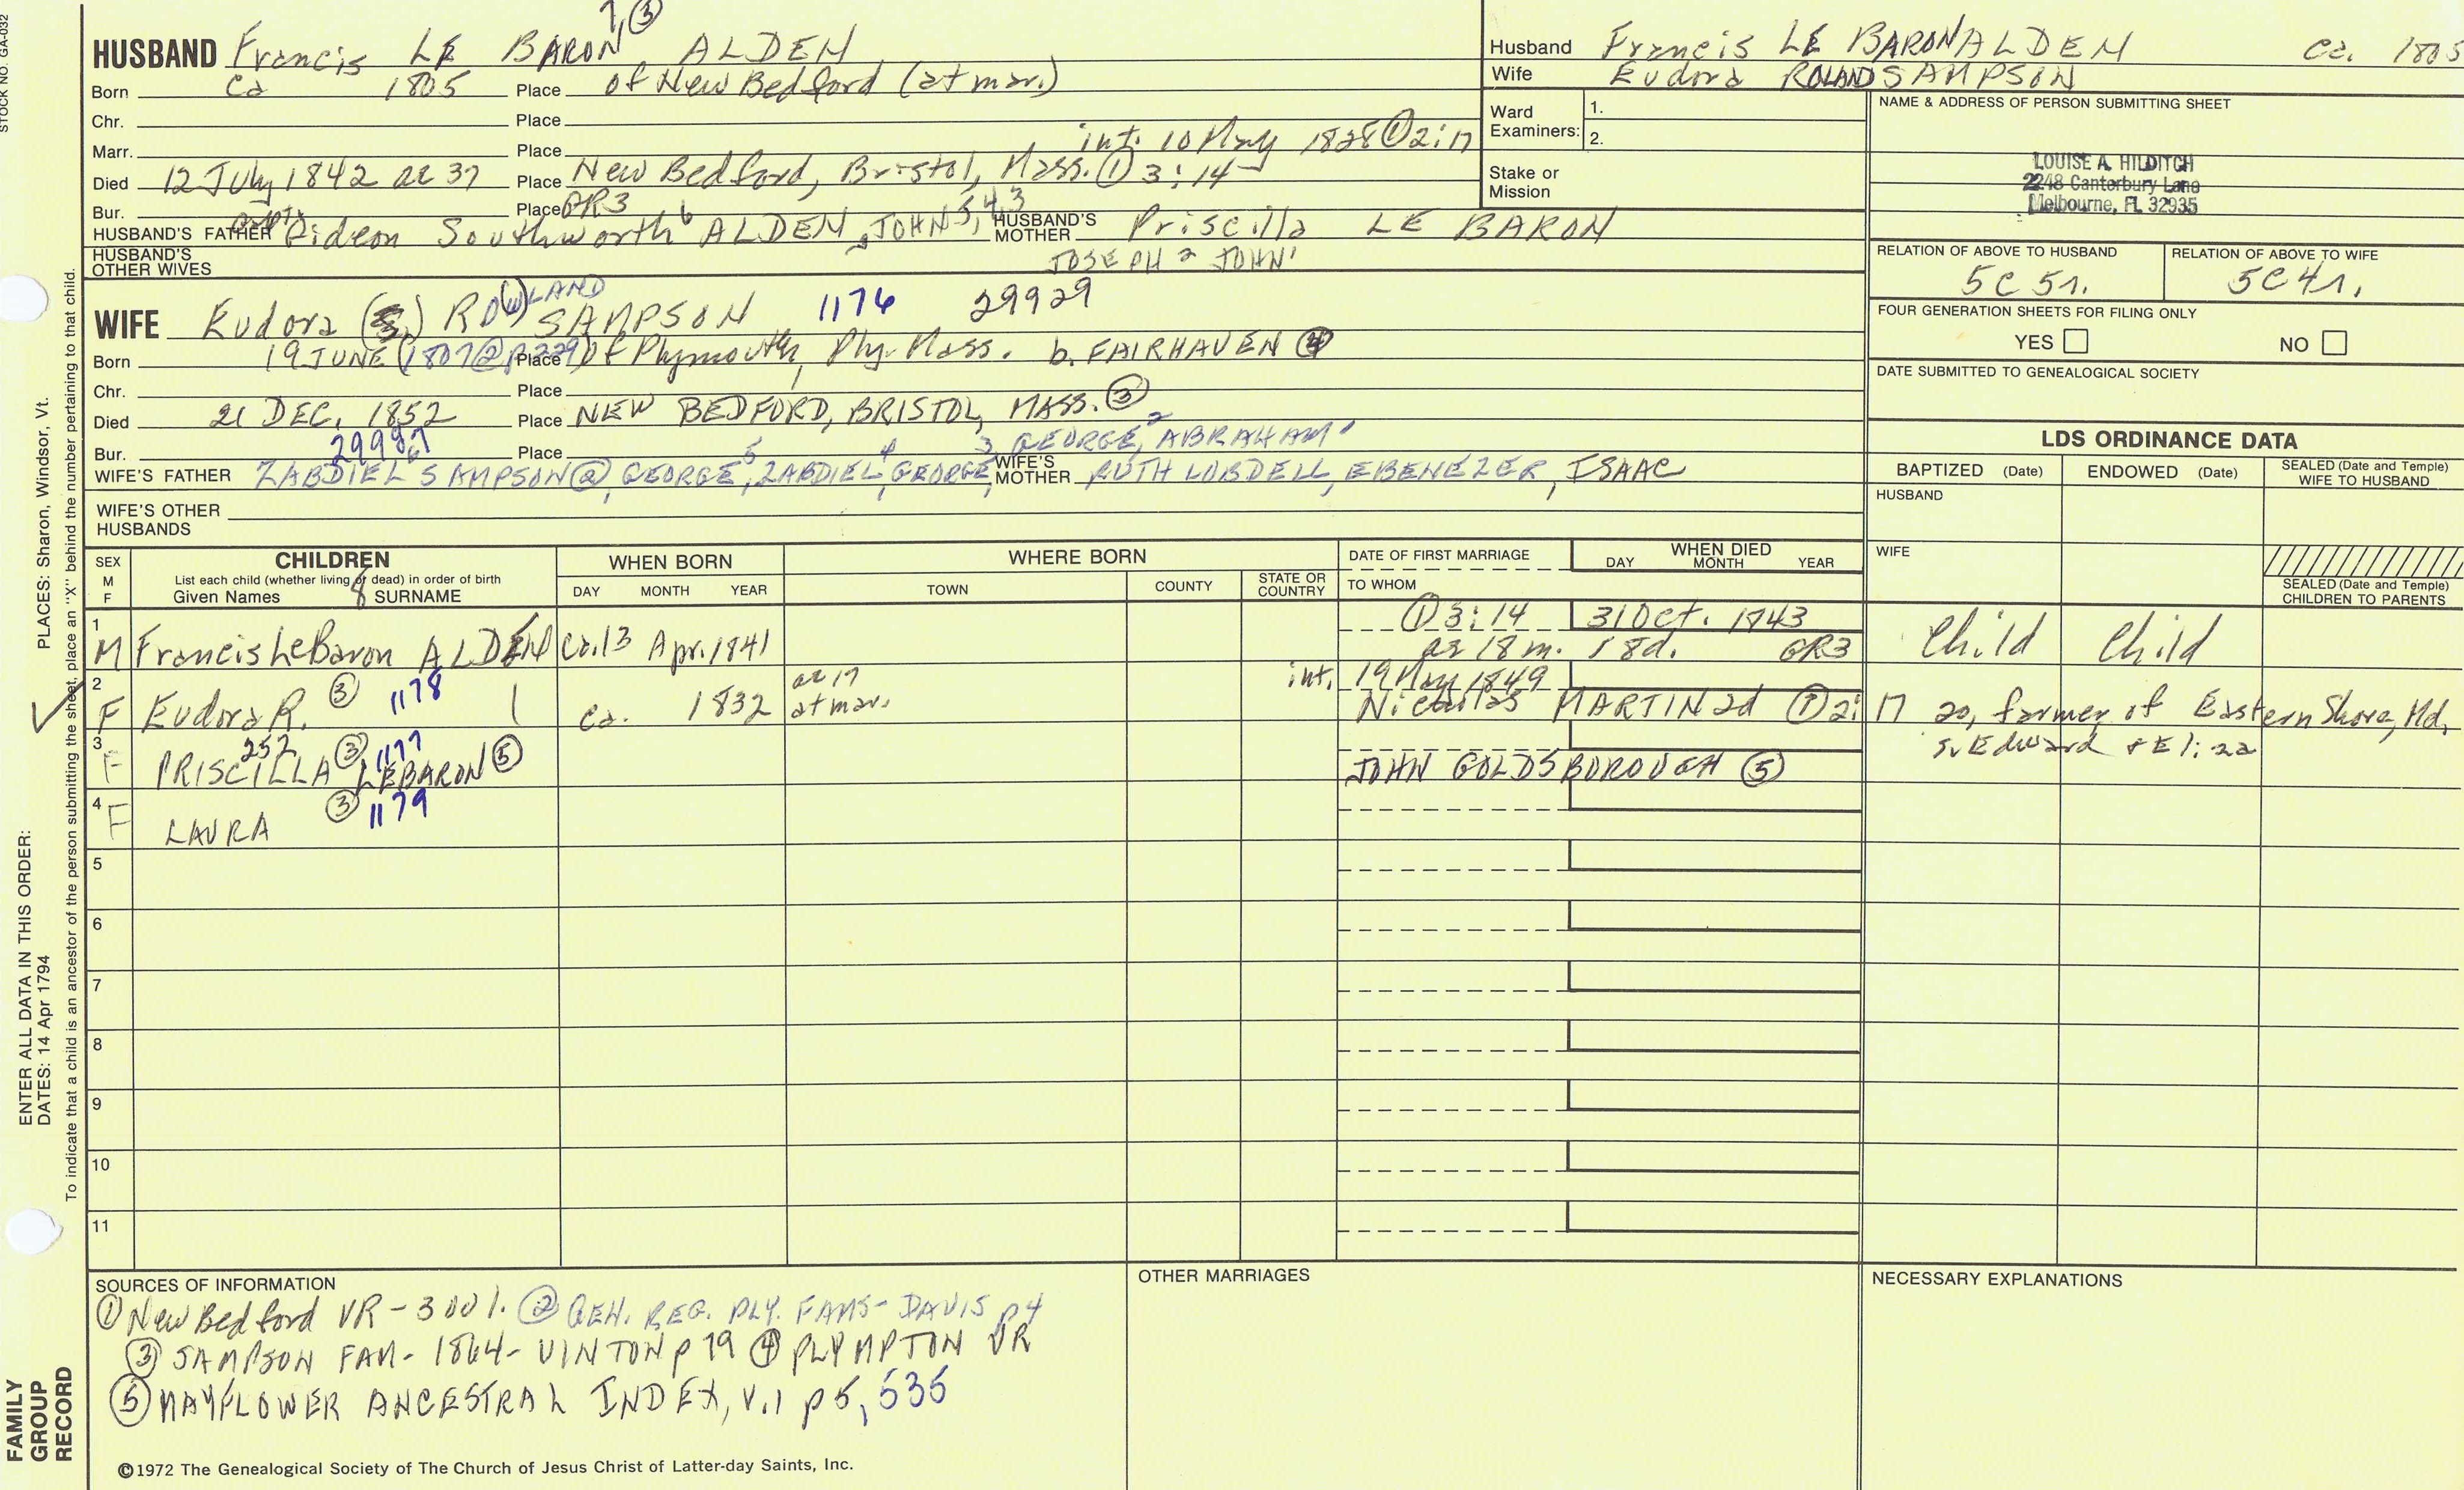 STOCK NO. GA-032
7, ③
HUSBAND Francis LE BARON ALDEN
Born Ca 1805 Place of New Bedford (at mar.)
Chr. Place
Marr. Place int. 10 May 1828 ① 2:17
Died 12 July 1842 ae 37 Place New Bedford, Bristol, Mass. ① 3:14
Bur. Place GR3
HUSBAND'S FATHER Capt. Gideon Southworth 6 ALDEN, JOHN 5,4,3 HUSBAND'S MOTHER Priscilla LE BARON
HUSBAND'S OTHER WIVES JOSEPH 2 JOHN 1
WIFE Eudora (S.) RO(W)LAND SAMPSON 1176 29929
Born 19 JUNE (1807 @ p 229) Place of Plymouth, Ply. Mass. b. FAIRHAVEN ④
Chr. Place
Died 21 DEC. 1852 Place NEW BEDFORD, BRISTOL, MASS. ③
Bur. 29987 Place 3 GEORGE, 2 ABRAHAM 1
WIFE'S FATHER ZABDIEL 6 SAMPSON ②, GEORGE 5, ZABDIEL 4, GEORGE, WIFE'S MOTHER RUTH LOBDELL, EBENEZER, ISAAC
WIFE'S OTHER HUSBANDS
Husband Francis LE BARON ALDEN ca. 1805
Wife Eudora ROLAND SAMPSON
Ward Examiners: 1.
2.
Stake or Mission
NAME & ADDRESS OF PERSON SUBMITTING SHEET
LOUISE A. HILDITCH
2248 Canterbury Lane
Melbourne, FL 32935
RELATION OF ABOVE TO HUSBAND
5C 5r.
RELATION OF ABOVE TO WIFE
5C 4r.
FOUR GENERATION SHEETS FOR FILING ONLY
YES NO
DATE SUBMITTED TO GENEALOGICAL SOCIETY
LDS ORDINANCE DATA
BAPTIZED (Date) ENDOWED (Date) SEALED (Date and Temple) WIFE TO HUSBAND
HUSBAND
WIFE
SEALED (Date and Temple) CHILDREN TO PARENTS
SEX M F
CHILDREN
List each child (whether living or dead) in order of birth
Given Names 8 SURNAME
WHEN BORN
DAY MONTH YEAR
WHERE BORN
TOWN COUNTY STATE OR COUNTRY
DATE OF FIRST MARRIAGE
TO WHOM
WHEN DIED
DAY MONTH YEAR
1 M Francis LeBaron ALDEN Ca. 13 Apr. 1841 ① 3:14 31 Oct. 1743
ae 18 m. 18d. GR3 Child Child
2 F Eudora R. ③ 1178 ca. 1832 ae 17 at mar. int. 19 May 1849
Nicholas MARTIN 2d ① 2:17 20, farmer of Eastern Shore, Md,
s. Edward & Eliza
3 F PRISCILLA 252 ③ 1177 LEBARON ⑤ JOHN GOLDSBOROUGH ⑤
4 F LAURA ③ 1179
5
6
7
8
9
10
11
SOURCES OF INFORMATION
① New Bedford VR - 3 vol. ② GEN. REG. PLY. FAMS - DAVIS p 4
③ SAMPSON FAM - 1864 - VINTON p 79 ④ PLYMPTON VR
⑤ MAYFLOWER ANCESTRAL INDEX, V.1 p 5, 535
OTHER MARRIAGES
NECESSARY EXPLANATIONS
©1972 The Genealogical Society of The Church of Jesus Christ of Latter-day Saints, Inc.
ENTER ALL DATA IN THIS ORDER:
DATES: 14 Apr 1794
PLACES: Sharon, Windsor, Vt.
To indicate that a child is an ancestor of the person submitting the sheet, place an "X" behind the number pertaining to that child.
FAMILY
GROUP
RECORD